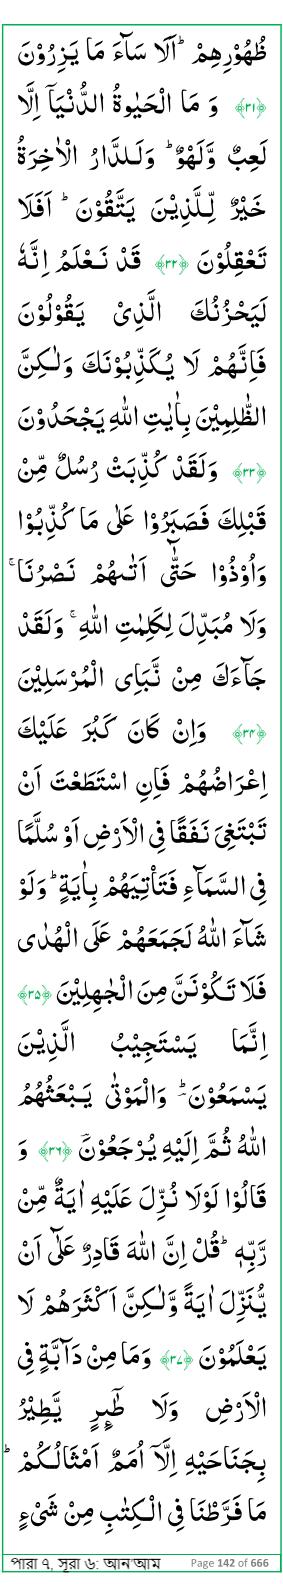 ظُهُوْرِهِمْ ؕ اَلَا سَآءَ مَا يَزِرُوْنَ
﴿۳۱﴾ وَ مَا الْحَيٰوةُ الدُّنْيَاۤ اِلَّا
لَعِبٌ وَّلَهْوٌ ؕ وَلَـلدَّارُ الْاٰخِرَةُ
خَيْرٌ لِّـلَّذِيْنَ يَتَّقُوْنَ ؕ اَفَلَا
تَعْقِلُوْنَ ﴿۳۲﴾ قَدْ نَـعْلَمُ اِنَّهٗ
لَيَحْزُنُكَ الَّذِىْ يَقُوْلُوْنَ
فَاِنَّهُمْ لَا يُكَذِّبُوْنَكَ وَلٰـكِنَّ
الظّٰلِمِيْنَ بِاٰيٰتِ اللّٰهِ يَجْحَدُوْنَ
﴿۳۳﴾ وَلَقَدْ كُذِّبَتْ رُسُلٌ مِّنْ
قَبْلِكَ فَصَبَرُوْا عَلٰى مَا كُذِّبُوْا
وَاُوْذُوْا حَتّٰٓى اَتٰٮهُمْ نَصْرُنَا ۚ
وَلَا مُبَدِّلَ لِكَلِمٰتِ اللّٰهِ ۚ وَلَقَدْ
جَآءَكَ مِنْ نَّبَاِى الْمُرْسَلِيْنَ
﴿۳۴﴾ وَاِنْ كَانَ كَبُرَ عَلَيْكَ
اِعْرَاضُهُمْ فَاِنِ اسْتَطَعْتَ اَنْ
تَبْتَغِىَ نَفَقًا فِى الْاَرْضِ اَوْ سُلَّمًا
فِى السَّمَآءِ فَتَاْتِيَهُمْ بِاٰيَةٍ ؕ وَلَوْ
شَآءَ اللّٰهُ لَجَمَعَهُمْ عَلَى الْهُدٰى
فَلَا تَكُوْنَنَّ مِنَ الْجٰهِلِيْنَ ﴿۳۵﴾
اِنَّمَا يَسْتَجِيْبُ الَّذِيْنَ
يَسْمَعُوْنَ ؔؕ وَالْمَوْتٰى يَـبْعَثُهُمُ
اللّٰهُ ثُمَّ اِلَيْهِ يُرْجَعُوْنَؔ ﴿۳۶﴾ وَ
قَالُوْا لَوْلَا نُزِّلَ عَلَيْهِ اٰيَةٌ مِّنْ
رَّبِّهٖ ؕ قُلْ اِنَّ اللّٰهَ قَادِرٌ عَلٰٓى اَنْ
يُّنَزِّلَ اٰيَةً وَّلٰـكِنَّ اَكْثَرَهُمْ لَا
يَعْلَمُوْنَ ﴿۳۷﴾ وَمَا مِنْ دَآبَّةٍ فِى
الْاَرْضِ وَلَا طٰۤٮِٕرٍ يَّطِيْرُ
بِجَنَاحَيْهِ اِلَّاۤ اُمَمٌ اَمْثَالُـكُمْ ؕ
مَا فَرَّطْنَا فِى الْـكِتٰبِ مِنْ شَىْءٍ
পারা ৭, সূরা ৬: আন'আম Page 142 of 666